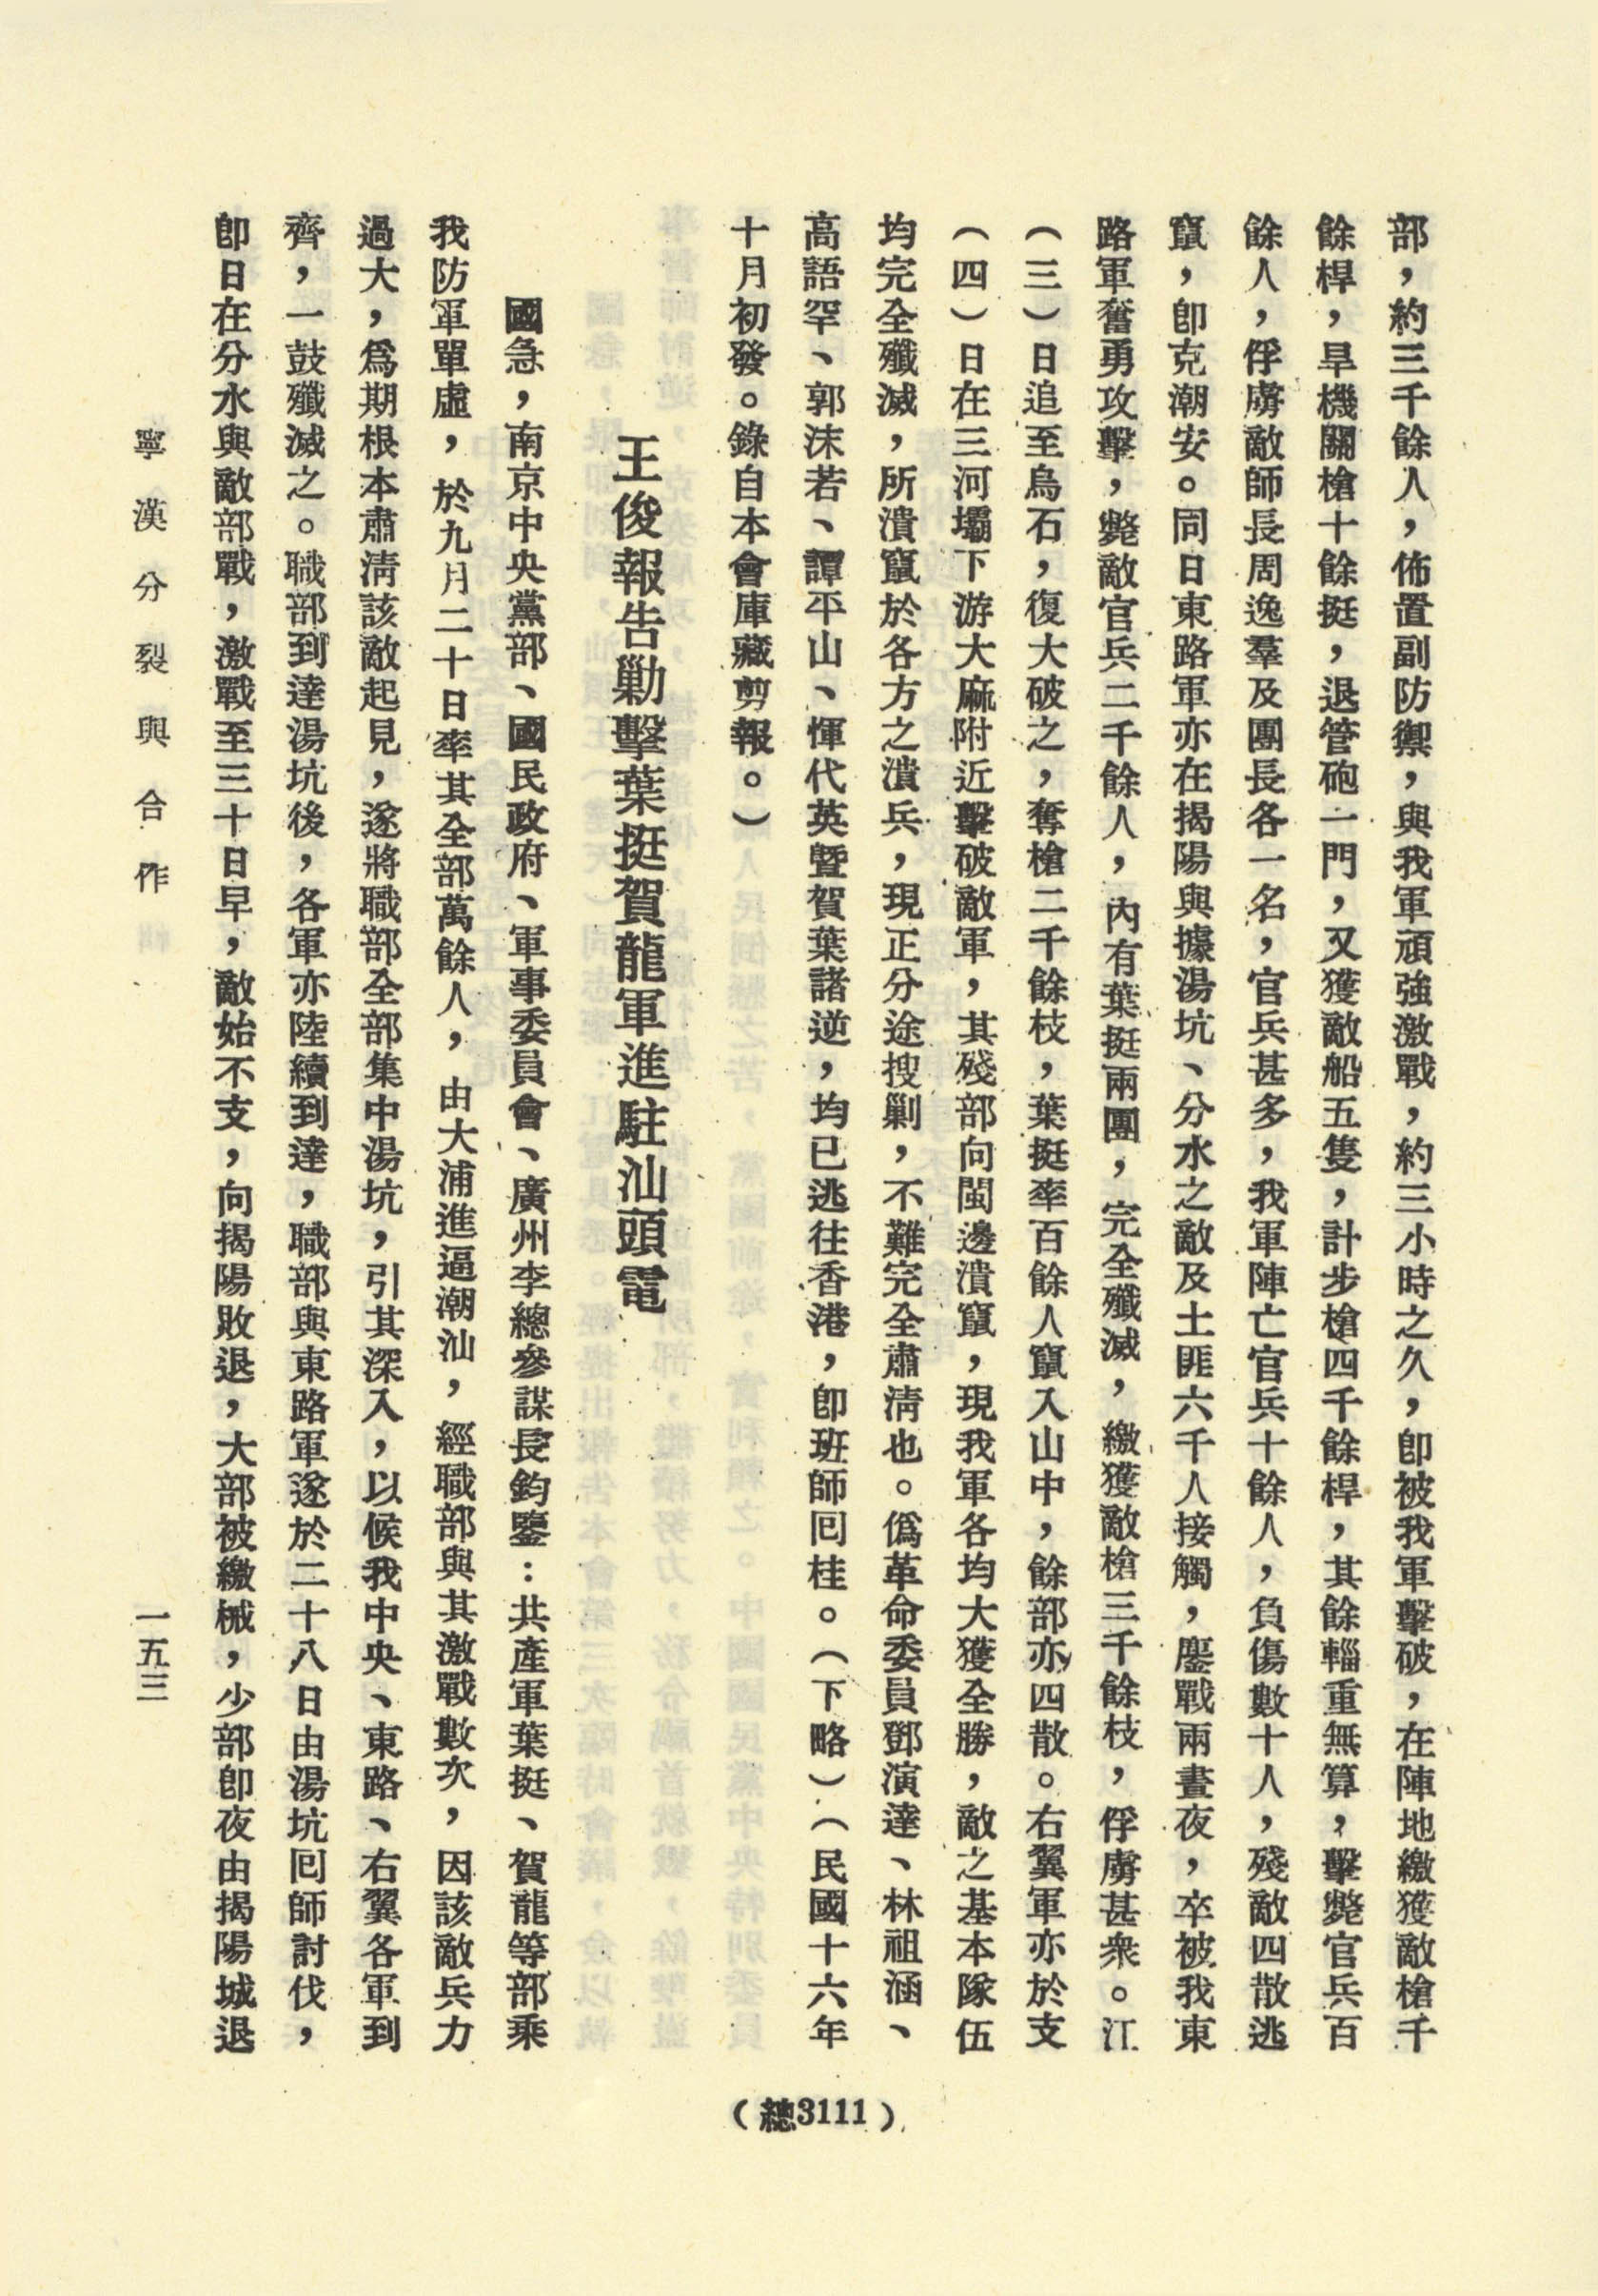 部，約三千餘人，佈置副防禦，與我軍頑強激戰，約三小時之久，卽被我軍擊破，在陣地繳獲敵槍千
餘桿，旱機關槍十餘挺，退管砲一門，又獲敵船五隻，計步槍四千餘桿，其餘輜重無算，擊斃官兵百
餘人，俘虜敵師長周逸羣及團長各一名，官兵甚多，我軍陣亡官兵十餘人，負傷數十人，殘敵四散逃
竄，卽克潮安。同日東路軍亦在揭陽與據湯坑、分水之敵及土匪六千人接觸，鏖戰兩晝夜，卒被我東
路軍奮勇攻擊，斃敵官兵二千餘人，內有葉挺兩團，完全殲滅，繳獲敵槍三千餘枝，俘虜甚衆。江
（三）日追至烏石，復大破之，奪槍二千餘枝，葉挺率百餘人竄入山中，餘部亦四散。右翼軍亦於支
（四）日在三河壩下游大麻附近擊破敵軍，其殘部向閩邊潰竄，現我軍各均大獲全勝，敵之基本隊伍
均完全殲滅，所潰竄於各方之潰兵，現正分途搜剿，不難完全肅淸也。僞革命委員鄧演達、林祖涵、
高語罕、郭沫若、譚平山、惲代英暨賀葉諸逆，均已逃往香港，卽班師囘桂。（下略）（民國十六年
十月初發。錄自本會庫藏剪報。）
王俊報告勦擊葉挺賀龍軍進駐汕頭電
國急，南京中央黨部、國民政府、軍事委員會、廣州李總參謀長鈞鑒：共產軍葉挺、賀龍等部乘
我防軍單虛，於九月二十日率其全部萬餘人，由大浦進逼潮汕，經職部與其激戰數次，因該敵兵力
過大，爲期根本肅淸該敵起見，遂將職部全部集中湯坑，引其深入，以候我中央、東路、右翼各軍到
齊，一鼓殲滅之。職部到達湯坑後，各軍亦陸續到達，職部與東路軍遂於二十八日由湯坑囘師討伐，
卽日在分水與敵部戰，激戰至三十日早，敵始不支，向揭陽敗退，大部被繳械，少部卽夜由揭陽城退
寧漢分裂與合作
一五三
（總3111）